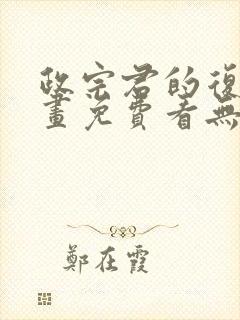 政宗君的復
畫免費看無
鄭在霞